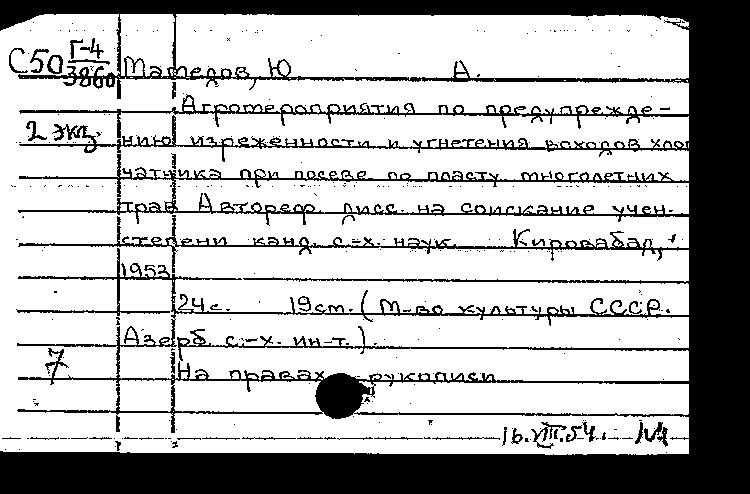 С50 Г-4
3860
Мамедов, Ю. А.
Агромероприятия по предупрежде-
2 экз.
нию изреженности и угнетения всходов хлоп
чатника при посеве по пласту многолетних
трав Автореф. дисс. на соискание учен.
степени канд. с.-х. наук. Кировабад,
1953
24с. 19см. (М-во культуры СССР.
Азерб. с.-х. ин-т.).
7
На правах рукописи
16.VIII.54.